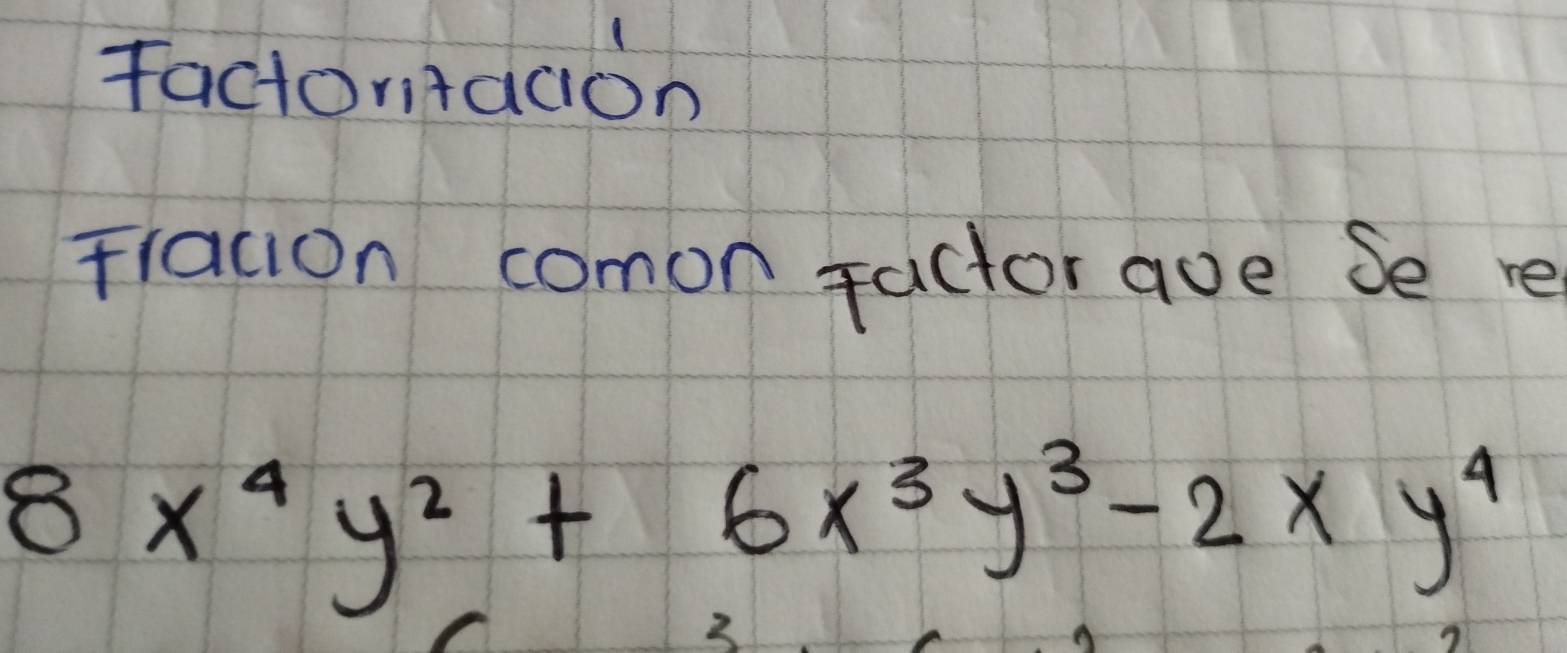 Factorización
Fracion comon Factor que Se re
8 x⁴ y² + 6x³y³ - 2 x y⁴